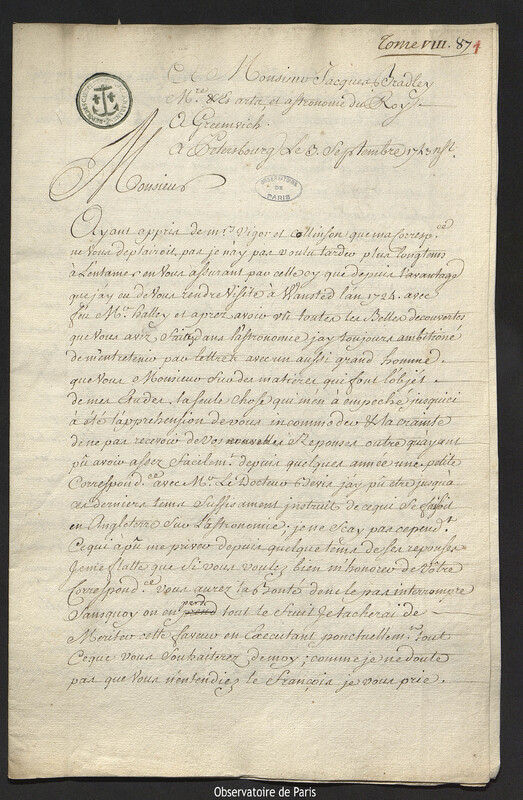 Tome VIII. 87
A Monsieur Jacques Bradley
Mre. Es arts, et astronomie du Roy
A Greenwich.
A Petersbourg Le 3. Septembre 1743 n st.
OBSERVATOIRE
DE
PARIS
Monsieur
Ayant appris de mrs. Vigor et Collinson que ma Corresce.
ne Vous deplairoit pas je n'ay pas voulu tarder plus longtems
à L'entamer en Vous assurant par celle cy que depuis l'avantage
que j'ay eu de Vous rendre Visite à Wansted l'an 1724. avec
feu Mr. halley et aprez avoir vü toutes les Belles decouvertes
que Vous avez faites dans l'astronomie j'ay toujours ambitioné
de m'entretenir par lettres avec un aussi grand homme
que Vous Monsieur Sur des matieres qui font l'objet
de mes Etudes, la seule chose qui m'en à empeché jusqu'ici
à été l'apprehension de vous incommoder & la crainte
de ne pas recevoir de Vos nouvelles Reponses outre qu'ayant
pû avoir assez facilemt. depuis quelques année une petite
Correspondce. avec Mr. Le Docteur Bevis j'ay pû étre jusqu'à
ces derniers tems suffisament instruit de ce qui se faisoit
en Angleterre Sur L'astronomie. je ne Scay pas cependt.
Ce qui à pû me priver depuis quelque tems de ses reponses
Je me flatte que si Vous voulez bien m'honorer de Vôtre
Correspondce. Vous aurez la bonté de ne le pas interrompre
Sans quoy on en perd tout le fruit Je tacherai de
Meriter cette faveur en Executant ponctuellemt. tout
Ceque vous Souhaiterez de moy; comme je ne doute
pas que Vous n'entendiez le François je vous prie
Observatoire de Paris